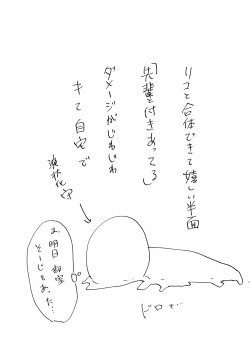 リコと合体できて嬉しい半面
「先輩と付きあってる」
ダメージがじわじわ
キて自宅で
液状化
あ、明日
ドロォ…